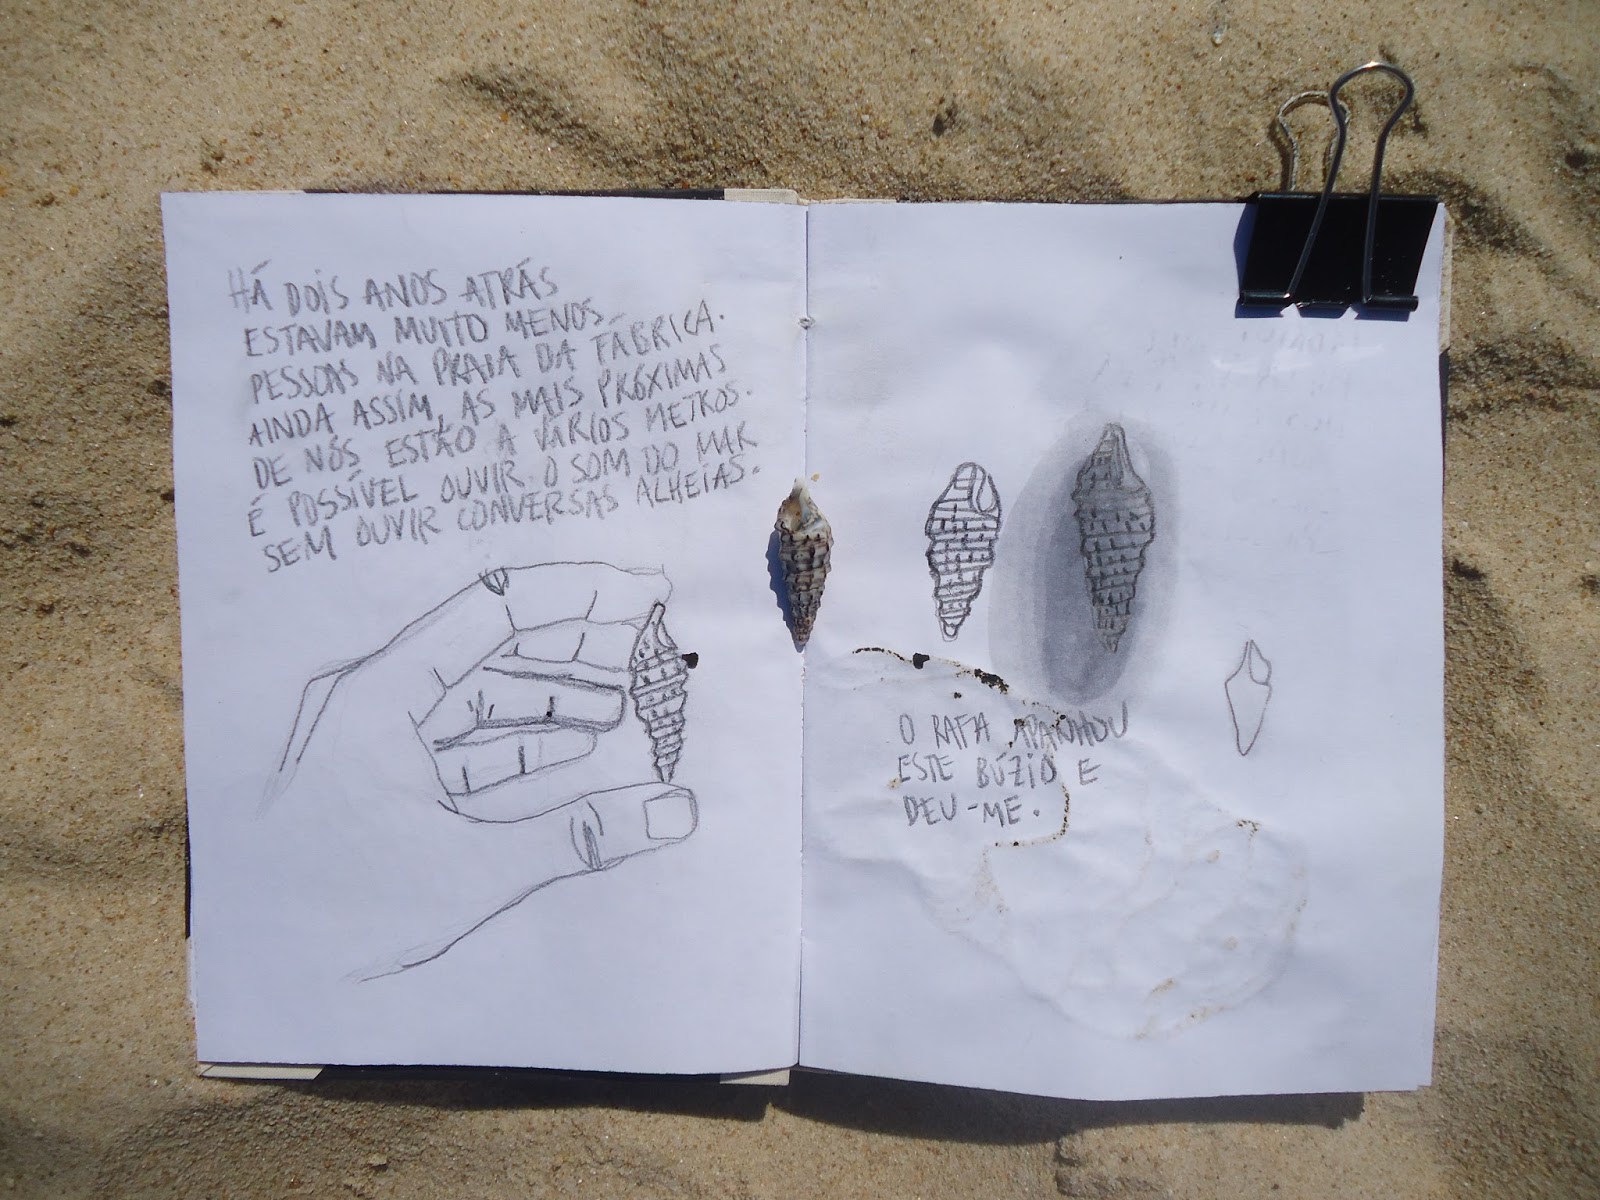 HÁ DOIS ANOS ATRÁS
ESTAVAM MUITO MENOS
PESSOAS NA PRAIA DA FÁBRICA.
AINDA ASSIM, AS MAIS PRÓXIMAS
DE NÓS ESTÃO A VÁRIOS METROS.
É POSSÍVEL OUVIR O SOM DO MAR
SEM OUVIR CONVERSAS ALHEIAS.
O RAFA APANHOU
ESTE BÚZIO E
DEU-ME.